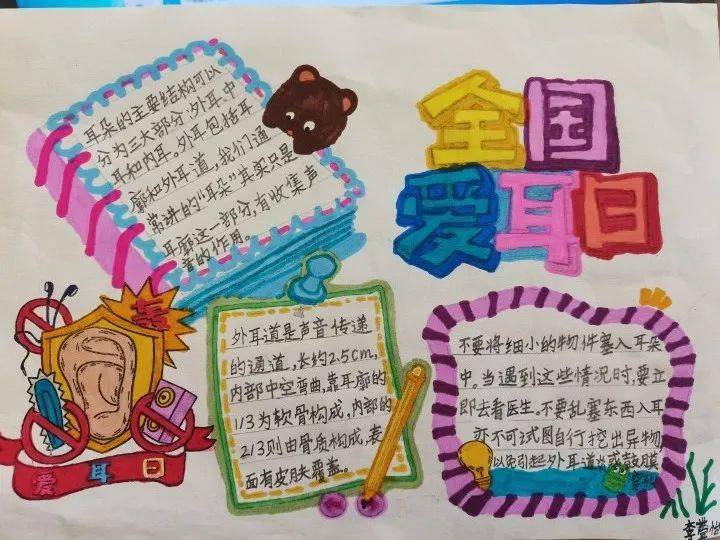 全国
爱耳日
耳朵的主要结构可以
分为三大部分:外耳、中
耳和内耳。外耳包括耳
廓和外耳道,我们通
常讲的“耳朵”其实只是
耳廓这一部分,有收集声
音的作用。
爱耳日
外耳道是声音传递
的通道,长约2.5cm,
内部中空弯曲,靠耳廓的
1/3为软骨构成,内部的
2/3则由骨质构成,表
面有皮肤覆盖。
不要将细小的物件塞入耳朵
中。当遇到这些情况时,要立
即去看医生。不要乱塞东西入耳
亦不可试图自行挖出异物,
以免引起外耳道炎或鼓膜
穿孔